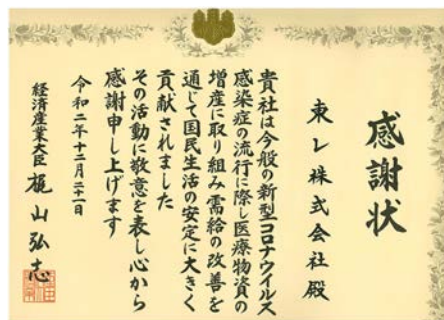 感謝状
東レ株式会社殿
貴社は今般の新型コロナウイルス
感染症の流行に際し医療物資の
増産に取り組み需給の改善を
通じて国民生活の安定に大きく
貢献されました
その活動に敬意を表し心から
感謝申し上げます
令和二年十二月二十一日
経済産業大臣 梶山弘志